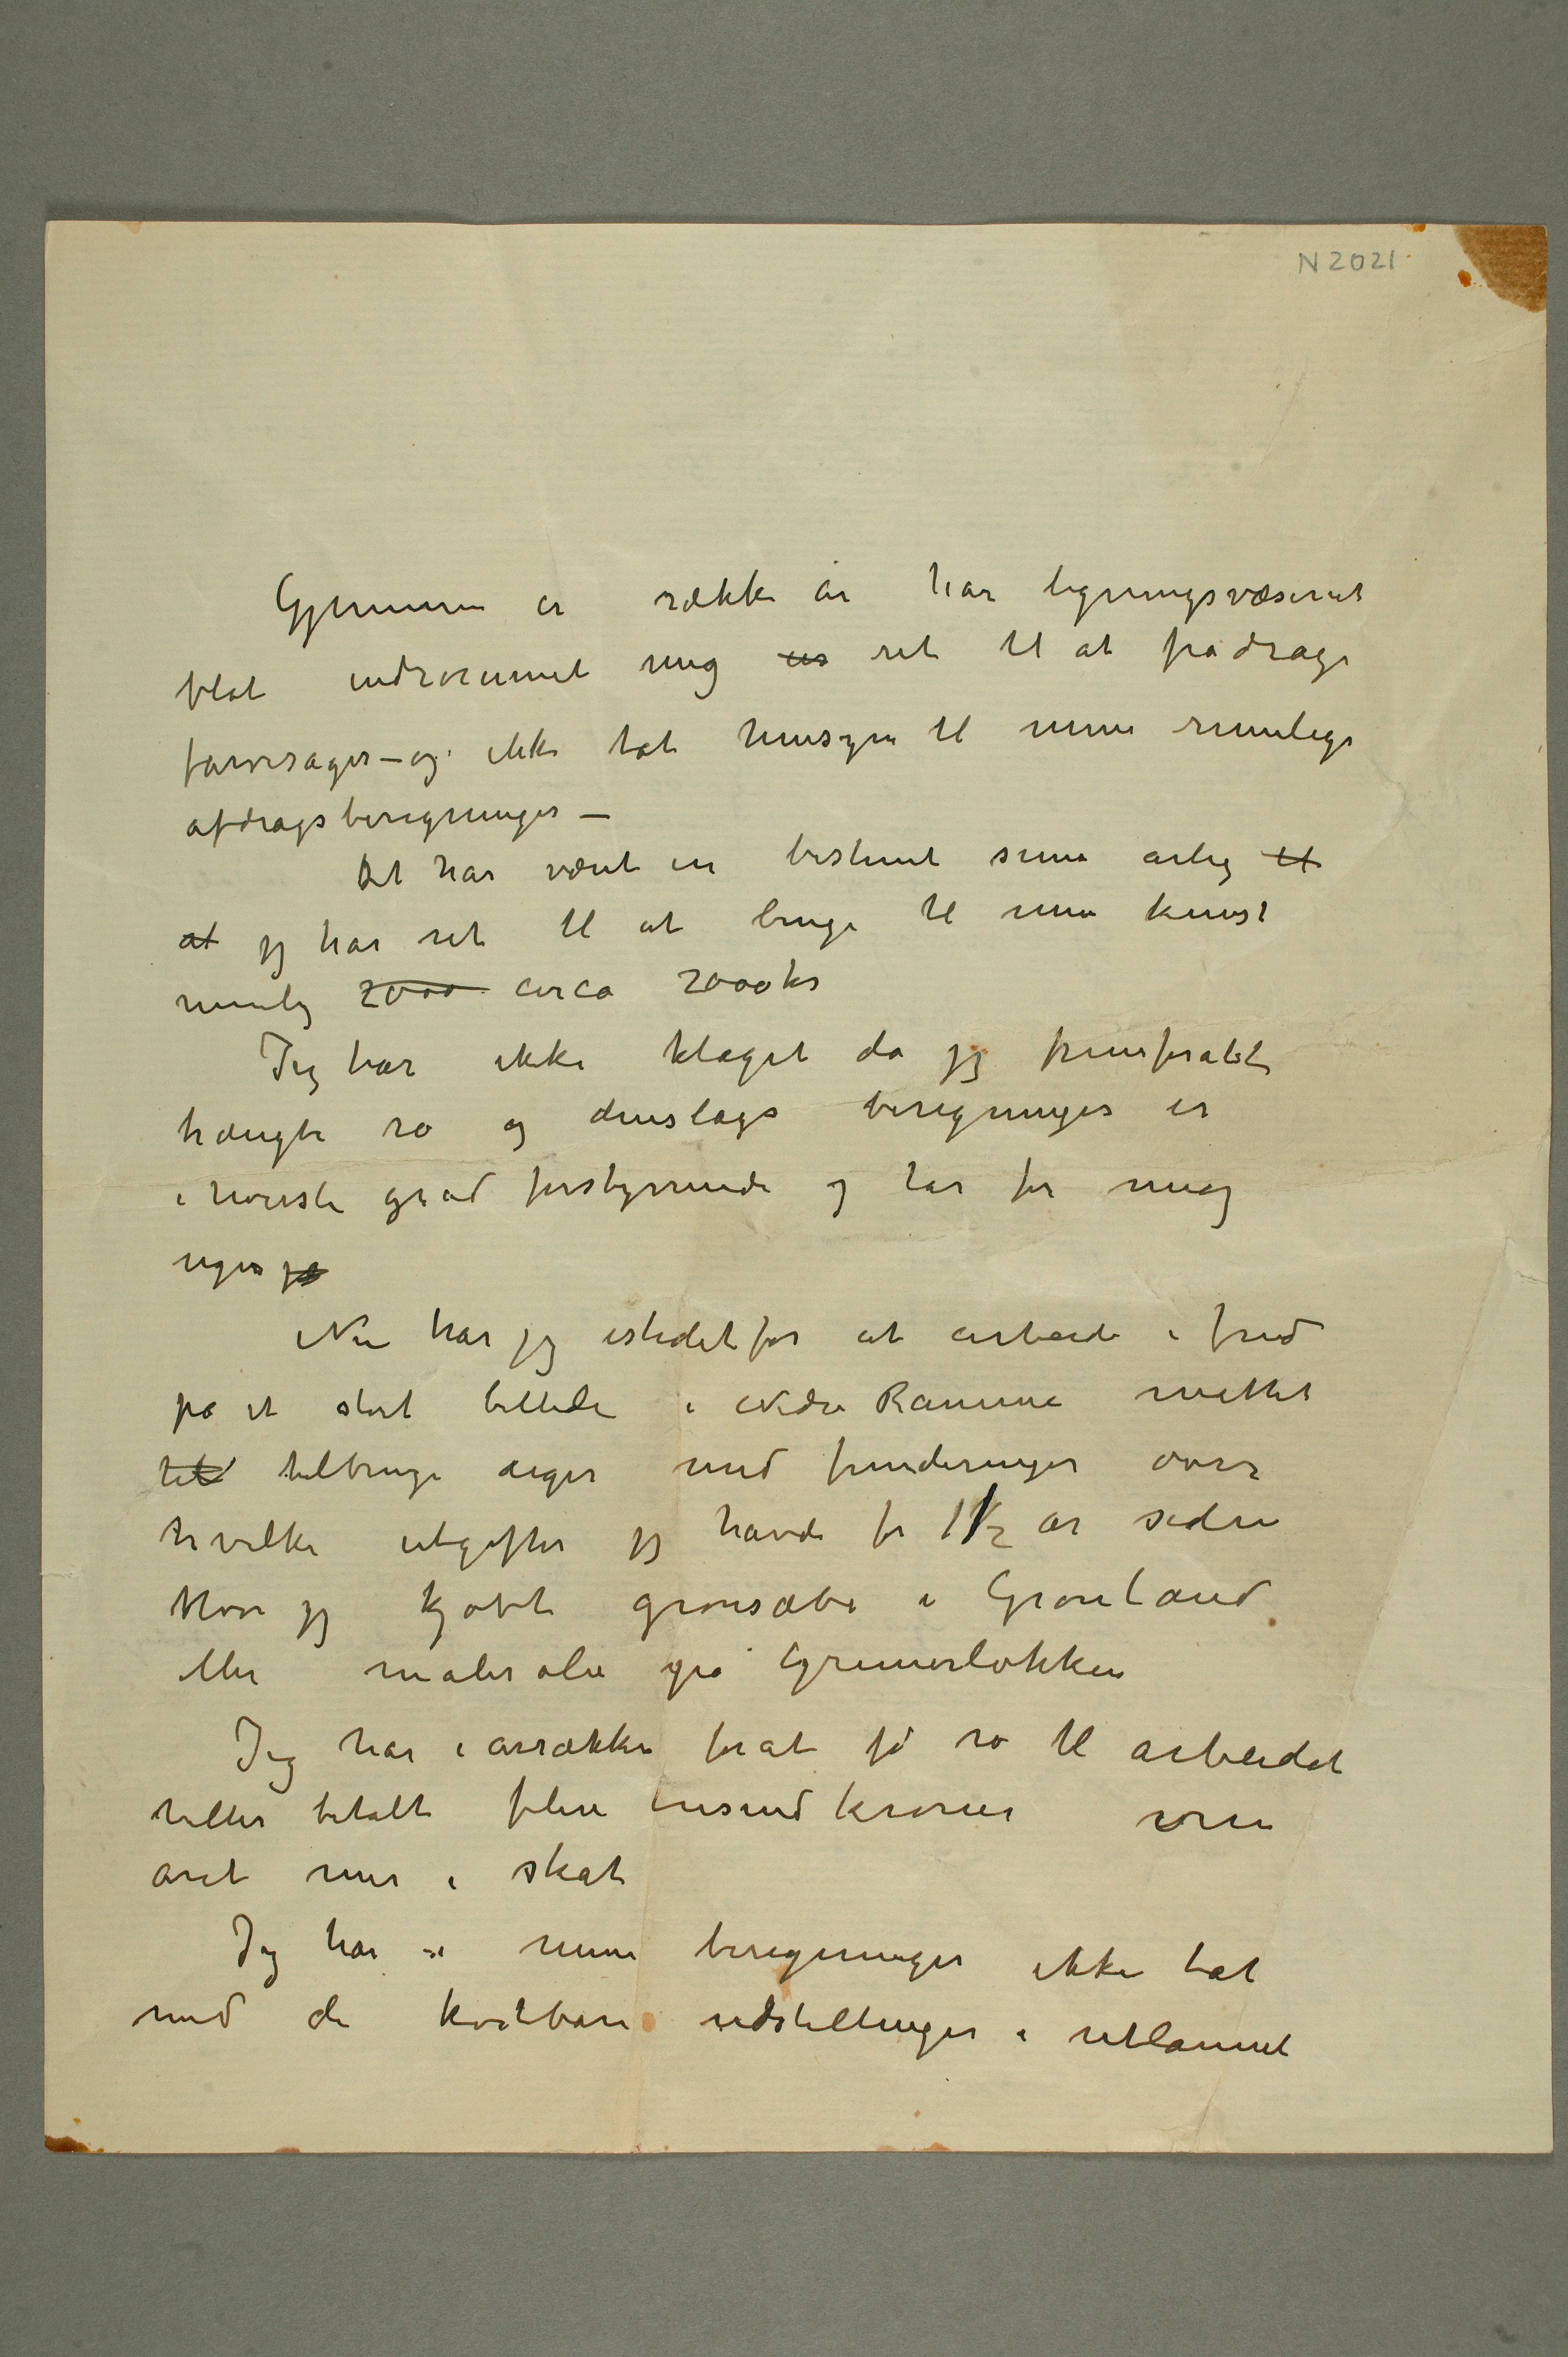 N 2021
Gjennem en række år har ligningsvæsenet
blot indrømmet mig en ret til at fradrage
farvesager – og ikke tat hensyn til mine rimelige
afdragsberegninger –
Det har været en bestemt sum årlig til
at jeg har ret til at bruge til min kunst
nemlig 2000 circa 2000 kr
Jeg har ikke klaget da jeg fremforalt
trængte ro og denslags beregninger er
i høieste grad forstyrrende og tar for mig
uger på
Nu har jeg istedetfor at arbeide i fred
på et stort billede i Nedre Ramme måttet
til tilbringe uger med funderinger over
hvilke utgifter jeg havde for 1 1/2 år siden
Hvor jeg kjøbte grønsæbe i Grønland
eller malerolie på Grünerløkken
Jeg har i årrækker forat få ro til arbeidet
heller betalt flere tusend kroner om
året mer i skat
Jeg har i mine beregninger ikke tat
med de kostbare udstillinger i utlannet